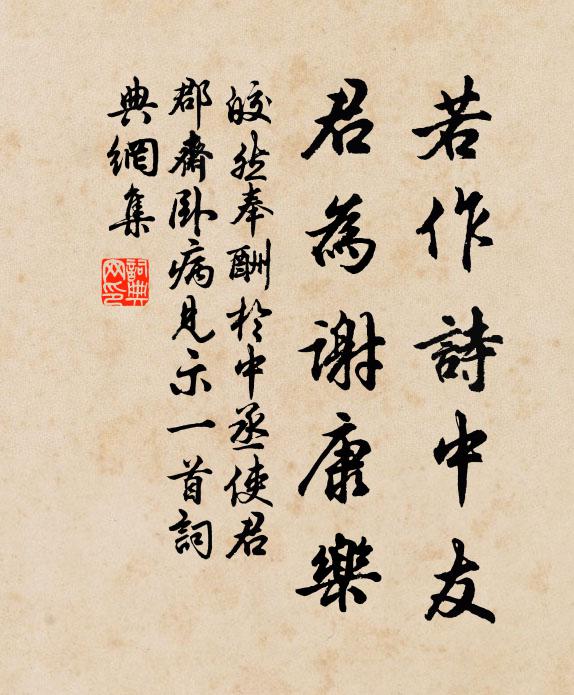 若作詩中友
君為謝康樂
皎然奉酬於中丞使君
郡齋臥病見示一首詞
典網集
詞典网印